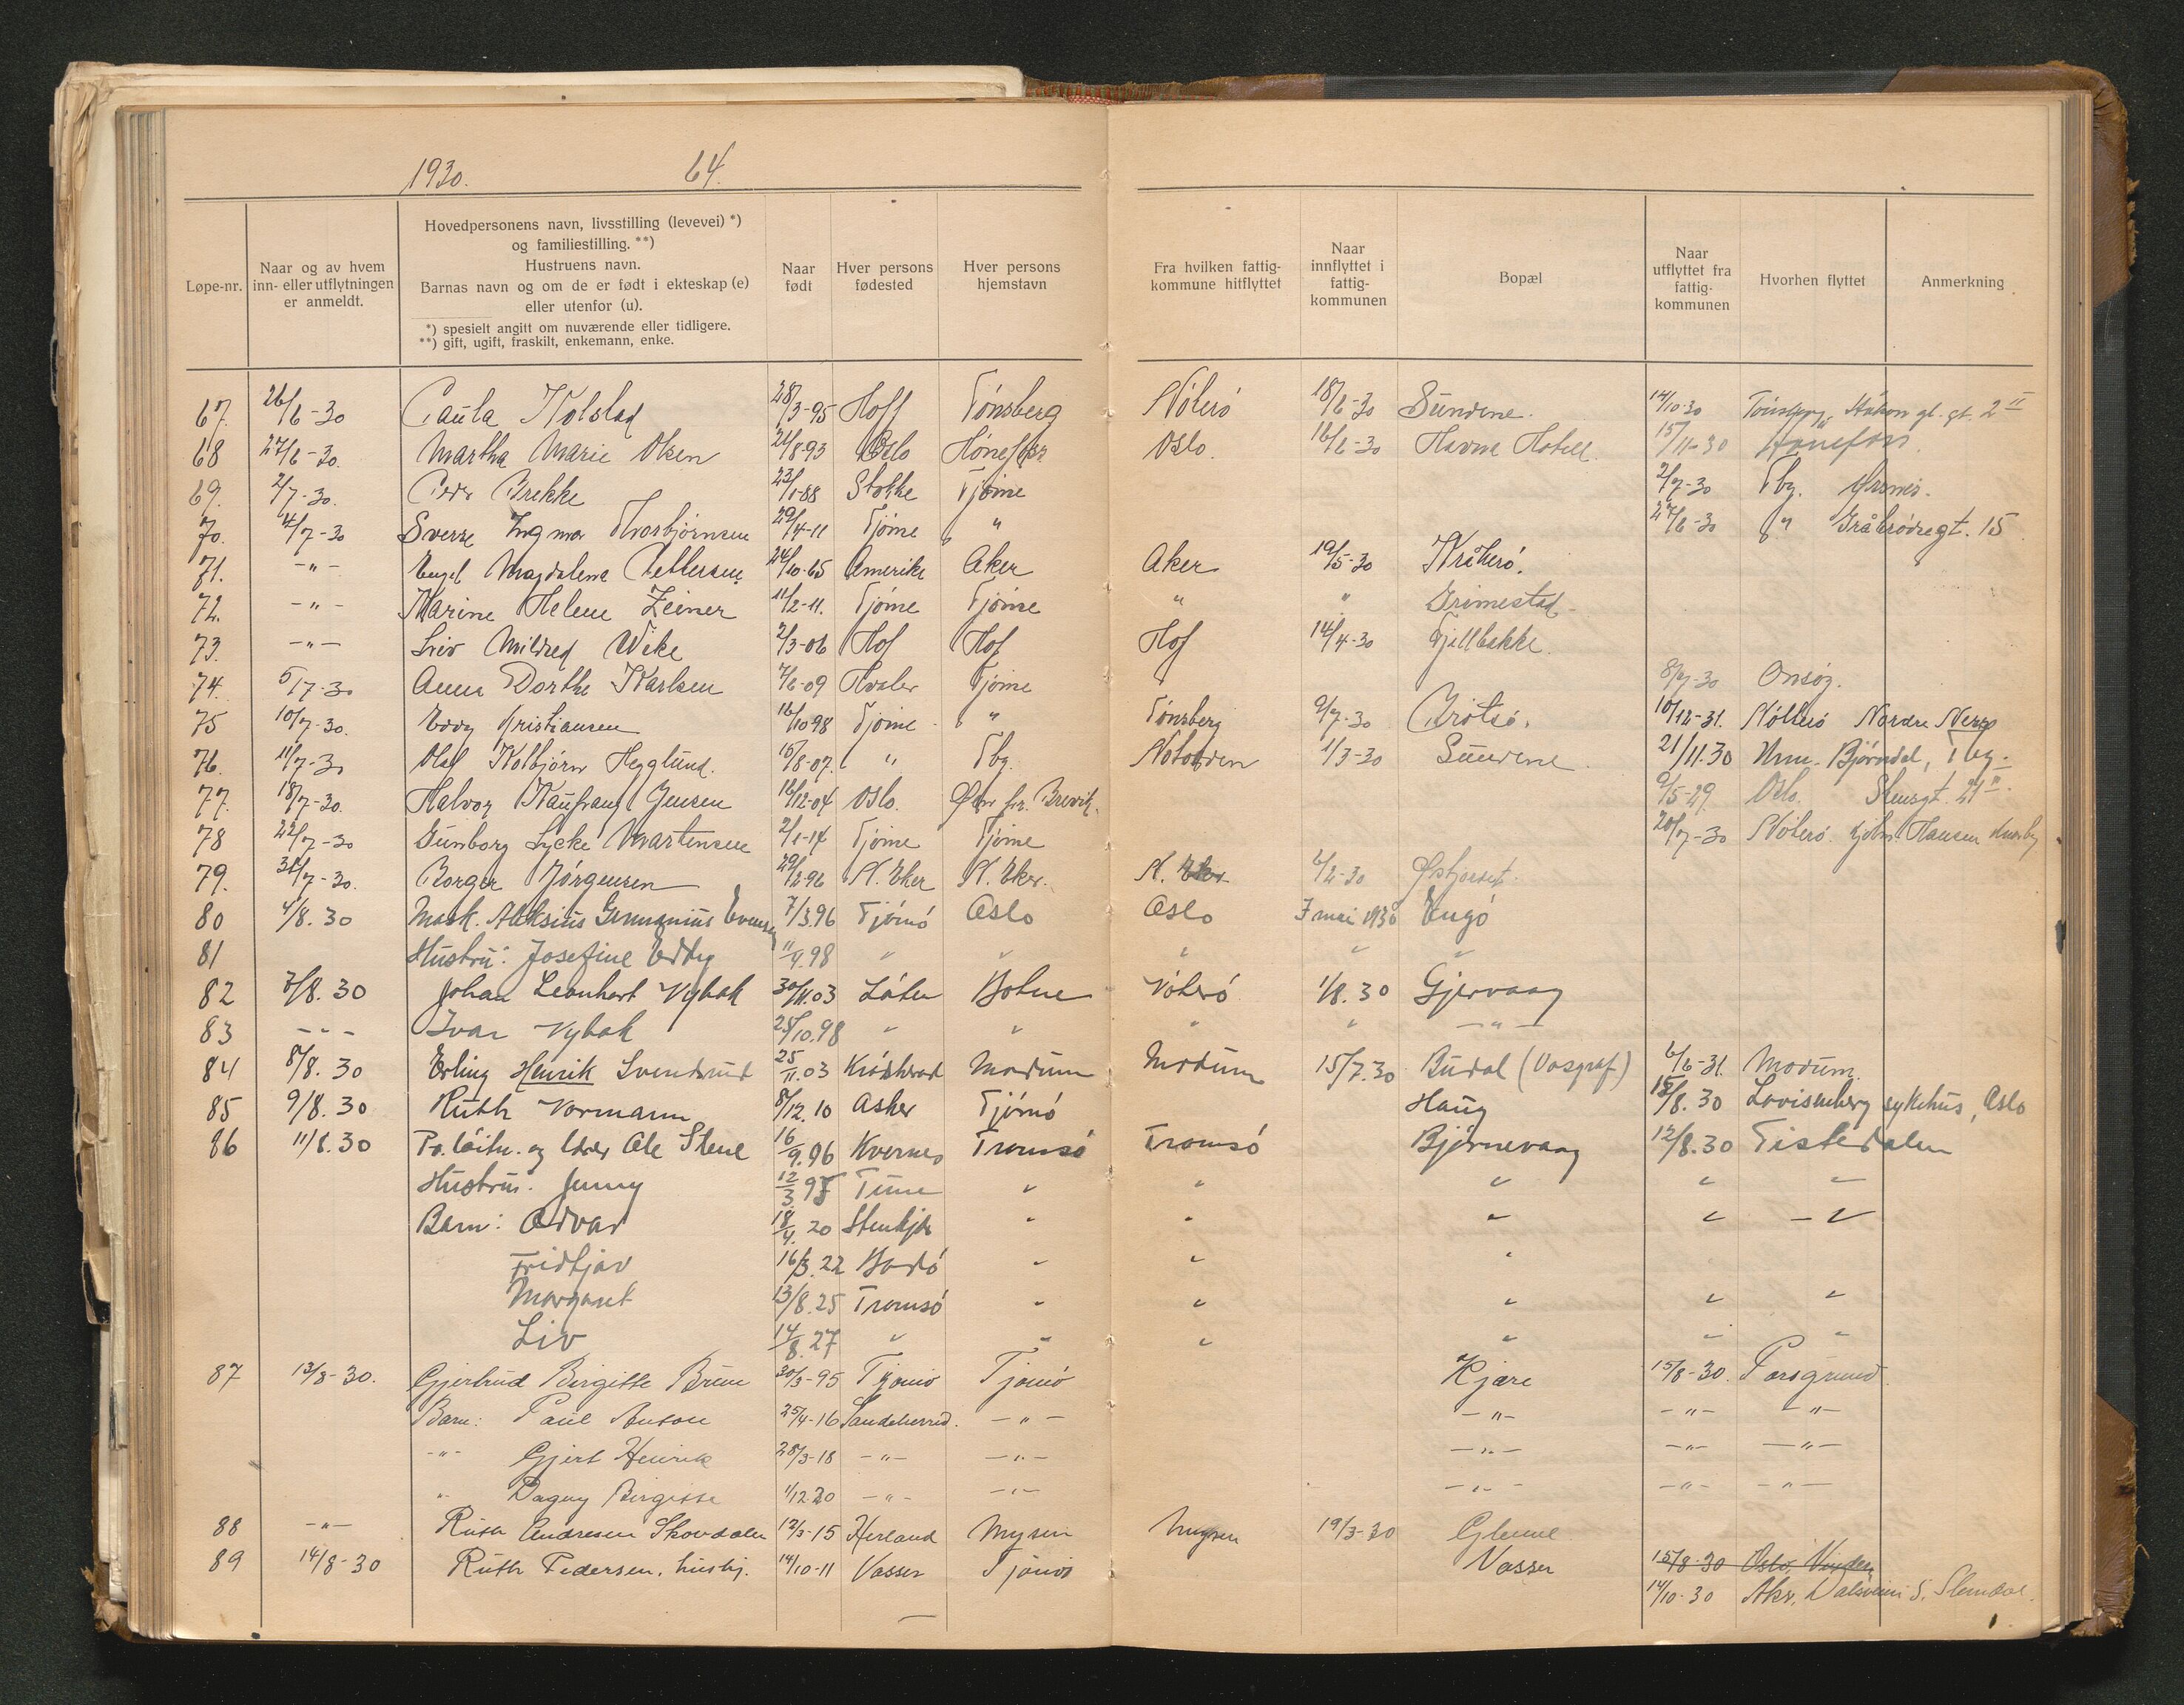 1930. 64.
Løpe-nr. Naar og av hvem inn- eller utflytningen er anmeldt. Hovedpersonens navn, livsstilling (levevei) *) og familiestilling. **) Hustruens navn. Barnas navn og om de er født i ekteskap (e) eller utenfor (u). *) spesielt angitt om nuværende eller tidligere. **) gift, ugift, fraskilt, enkemann, enke. Naar født Hver persons fødested Hver persons hjemstavn Fra hvilken fattig-kommune hitflyttet Naar innflyttet i fattig-kommunen Bopæl Naar utflyttet fra fattig-kommunen Hvorhen flyttet Anmerkning
67. 26/6-30 Paula Kolstad 28/3-95 Hoff Tønsberg Nøterø 18/6-30 Sundene. 14/10-30 Tønsberg, Håkon gl. gt. 2 II
68 27/6-30. Martha Marie Olsen 21/8-93 Oslo Hønefoss Oslo. 16/6-30 Havna Hotell. 15/11-30 Hønefoss.
69. 2/7-30. Peder Brekke 23/1-88 Stokke Tjøme 2/7-30 Tbg.
70. 4/7-30 Sverre Ingmar Thorbjørnsen 29/4-11 Tjøme " 27/6-30 " Gråbrødregt. 15
71. -"- Engel Magdalena Pettersen 24/10-65 Amerika Aker Aker 19/5-30 Kråkerø.
72. -"- Karine Helene Zeiner 11/2-11. Tjøme Tjøme " " Grimestad
73. -"- Liv Mildred Wike 2/3-06 Hof Hof Hof 14/4-30 Fjellbakke.
74. 5/7-30 Anna Dorthe Karlsen 7/6-09 Hvaler Tjøme 8/7-30 Onsøy.
75 10/7-30. Eddy Kristiansen 16/10 98 Tjøme " Tønsberg 9/7-30 Brøtsø. 10/12-31. Nøtterø Nordre
76. 11/7-30 Olaf Kolbjørn Hegglund. 15/8-07. " Tbg. Notodden 1/3-30 Sundene. 21/11.30 Bjørndal, Tbg.
77. 18/7-30. Halvor Jensen 16/12-04 Oslo. Brevik. 9/5-29. Oslo. 21 II
78 22/7-30 Gunborg Lycke Martensen 2/1-14 Tjøme Tjøme 20/7-30 Nøterø Hansen
79. 31/7-30. Borger Jørgensen 29/12-96 N. Eker N. Eker. N. Eker 6/2-30
80 4/8. 30 Mask. Aleksius Evensen 7/3.96 Tjømø Oslo Oslo 7 mai 1930 Engø
81 Hustru: Josefine Eddy 11/4.98 " " " " "
82 7/8. 30 Johan Leonhart Nybak 30/11.03 Låten Botne Nøterø 1/8. 30 Gjervaag
83 -"- Ivar Nybak 25/10.98 " " " " -"-
84 8/8. 30 Erling Henrik Svendsrud 25/11.03 Krødsherad Modum Modum 15/7.30 Budal 6/6-31. Modum.
85 9/8. 30 Ruth Normann 8/12.10 Asker Tjømø Haug 15/8. 30 Lovisenberg sykehus, Oslo
86 11/8.30 Ole Stene 16/9.96 Kvernes Tromsø Tromsø Bjørnevaag 12/8.30 Tistedalen
Hustru: Jenny 12/3 95 " " " " -
Barn: Odvar 18/4. 20 Stenkjær " " " " -"
Fridtjov 16/3. 22 Bodø " " "
Margaret 13/8.25 Tromsø " " " " "
Liv 14/8.27 " " " " " "
87 13/8-30. Gjertrud Birgitte Bruu 30/3-95 Tjømø Tjømø Kjære 15/8-30. Porsgrund.
Barn: Paul Anton 25/4-16 Sandeherred. -"- -"- -"- -"-
-"- Gjert Henrik 28/3-18 -"- -"- -"- -"- -"-
" Dagny Birgitte 1/12 20 -"- -"- -"- -"- -"-
88 -"- Ruth Andresen Skovdalen 12/3-15 Herland Mysen Mysen 19/3-30 Glenne
89 14/8-30 Ruth Pedersen, hushj. 14/10-11 Vasser Tjømø Vasser 15/8-30 Oslo, Vinderen
14/10-30 Akr, Dalsveien 5, Slemdal.